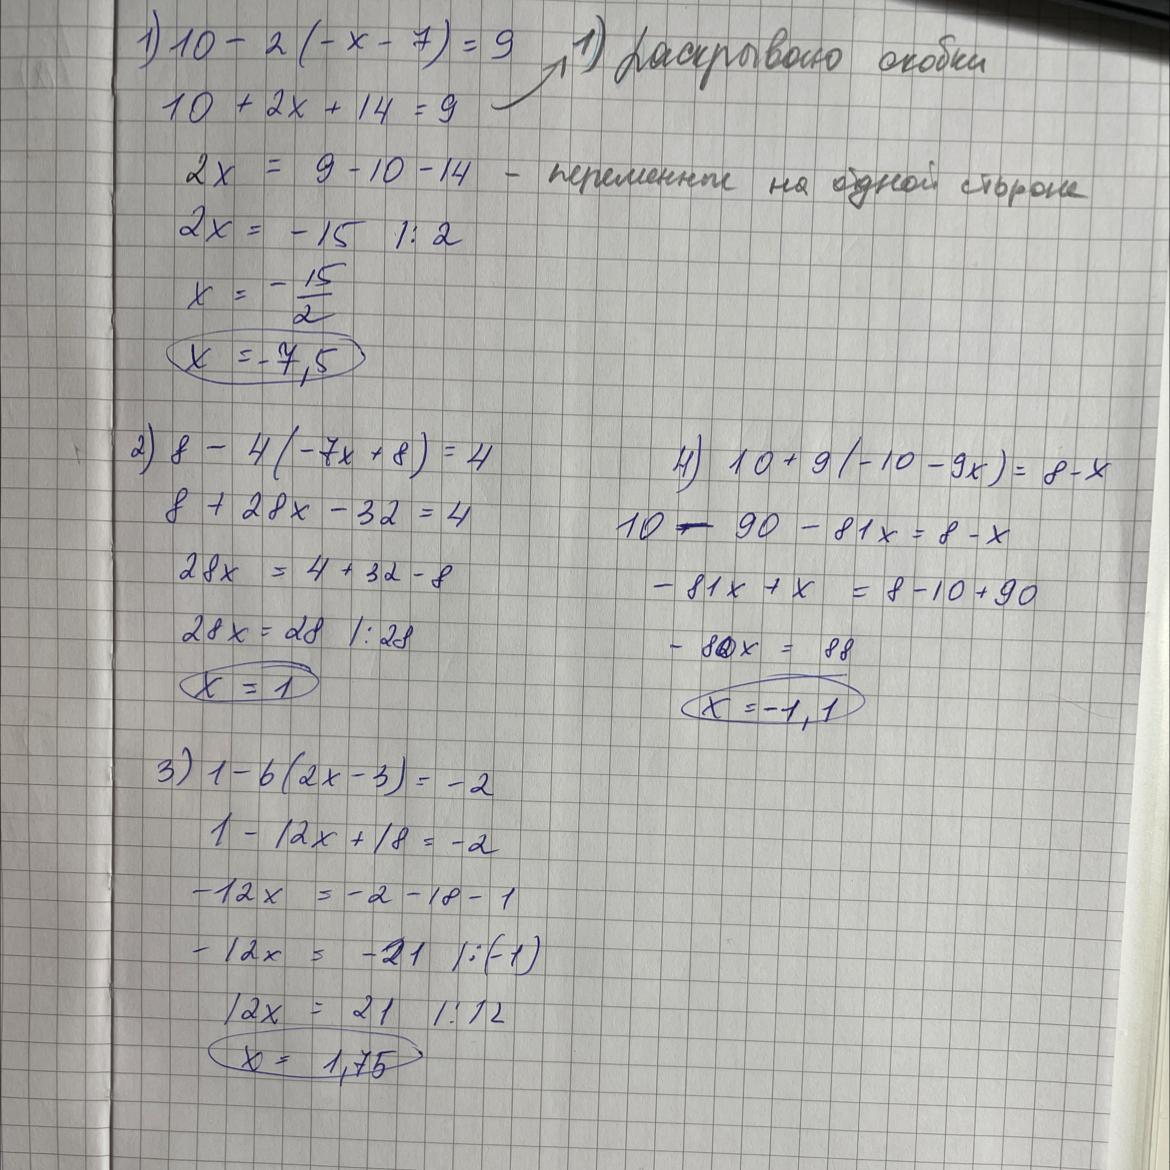 1) 10 - 2(-x - 7) = 9
1) Раскрываю скобки
10 + 2x + 14 = 9
2x = 9 - 10 - 14 - переменные на одной стороне
2x = -15 |: 2
x = -15/2
x = -7,5
2) 8 - 4(-7x + 8) = 4
8 + 28x - 32 = 4
28x = 4 + 32 - 8
28x = 28 |: 28
x = 1
3) 1 - 6(2x - 3) = -2
1 - 12x + 18 = -2
-12x = -2 - 18 - 1
-12x = -21 |:(-1)
12x = 21 |: 12
x = 1,75
4) 10 + 9(-10 - 9x) = 8 - x
10 - 90 - 81x = 8 - x
-81x + x = 8 - 10 + 90
-80x = 88
x = -1,1